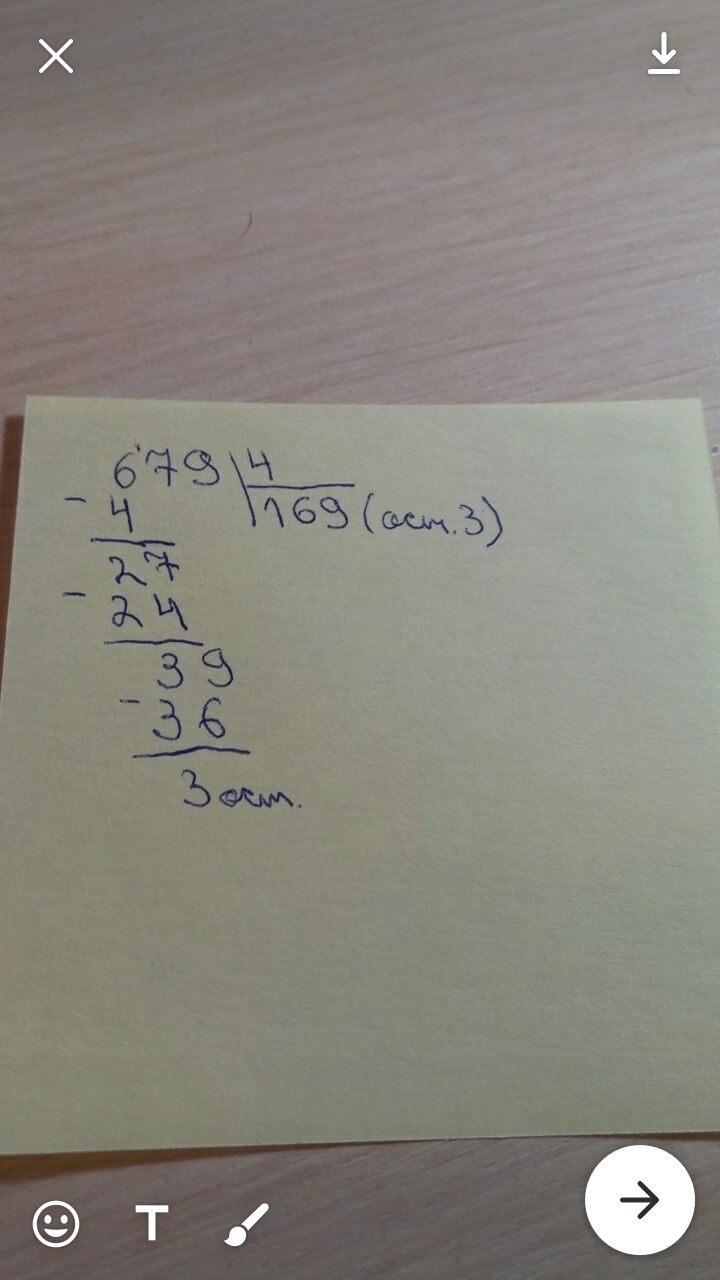 679 4
- 4 169 (ост. 3)
27
- 24
39
- 36
3 ост.
T